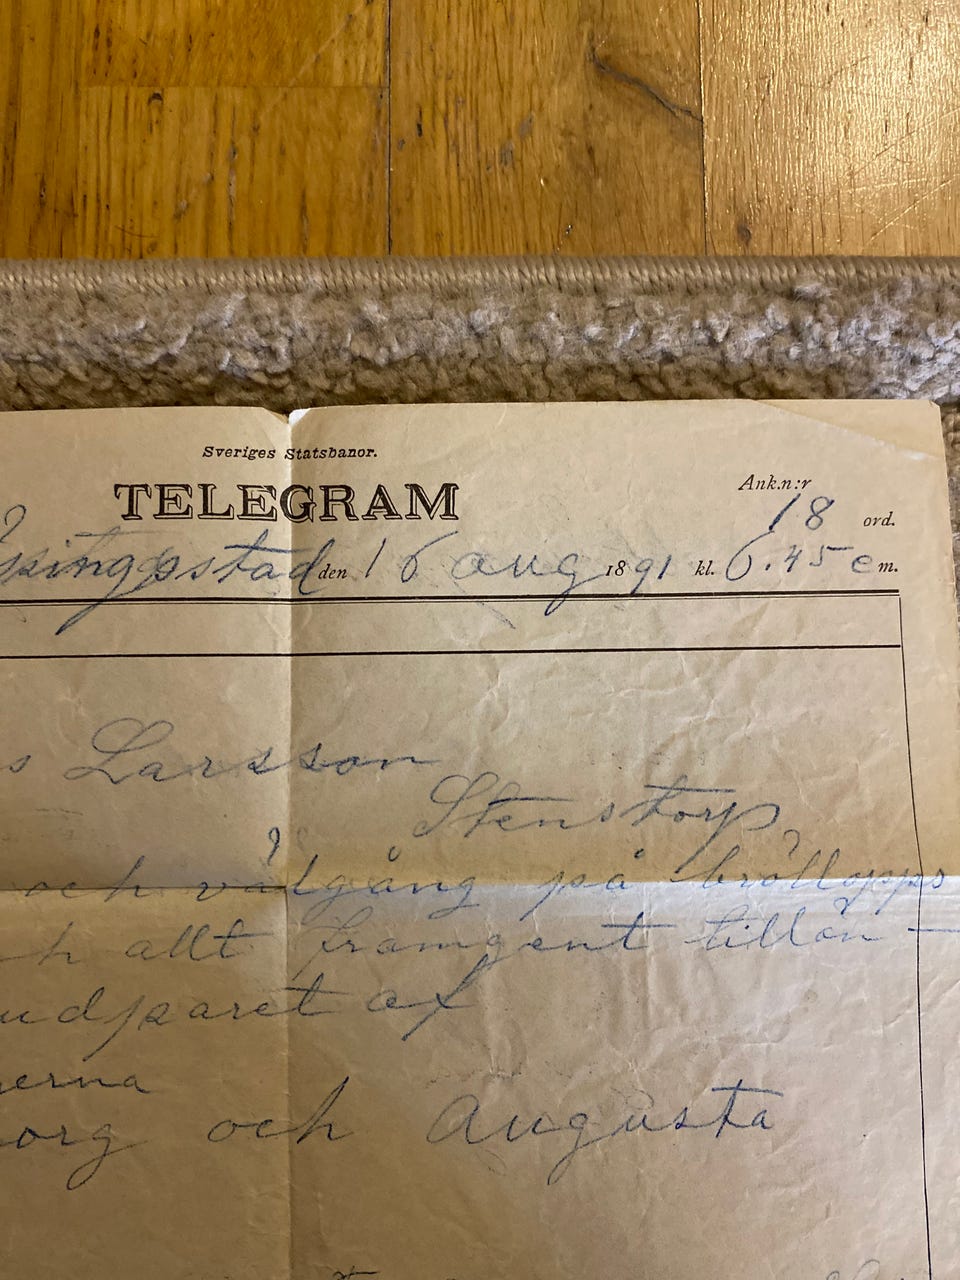 Sveriges Statsbanor.
TELEGRAM
Ank.n:r
18 ord.
den 16 aug 1891 kl. 6.45 e m.
s Larsson
Stenstorp
och välgång på bröllopps
h allt framgent tillön—
udparet af
erna
org och Augusta